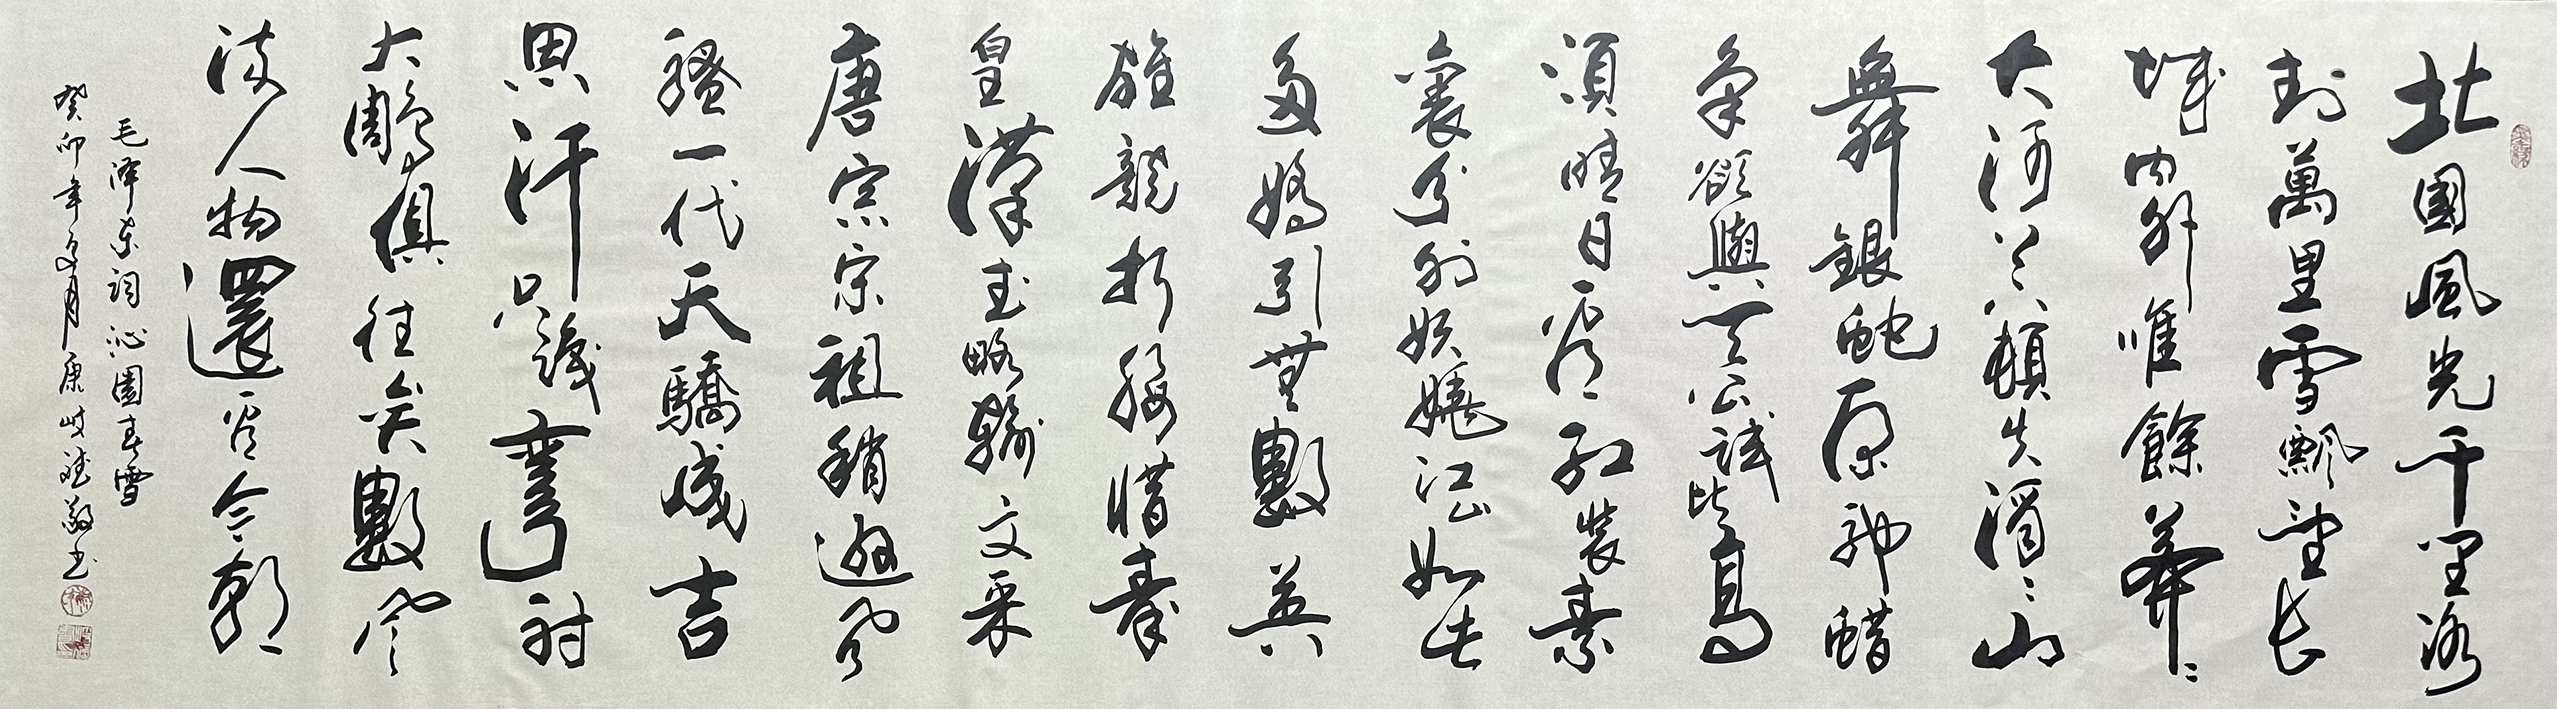 北國風光千里冰
封萬里雪飄望長
城內外唯餘莽〻
大河上下頓失滔〻山
舞銀蛇原馳蜡
象欲與天公試比高
須晴日看紅裝素
裹分外妖嬈江山如此
多嬌引無數英
雄競折腰惜秦
皇漢武略輸文采
唐宗宋祖稍遜風
騷一代天驕成吉
思汗只識彎弓射
大雕俱往矣數風
流人物還看今朝
毛泽东词沁園春雪
癸卯年夏月康岐敬书